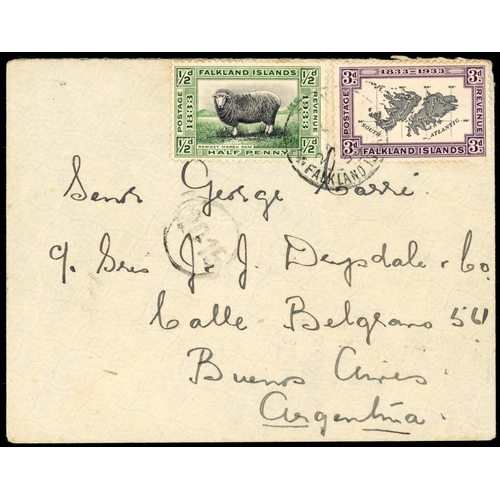 ½d FALKLAND ISLANDS ½d
POSTAGE 1833 1933 REVENUE
ROMNEY MARSH RAM
½d HALF PENNY ½d
3d 1833-1933 3d
POSTAGE REVENUE
SOUTH ATLANTIC
3d FALKLAND ISLANDS 3d
FALKLAND IS
Senor George
c/o Sres J. J. Drysdale & Co
Calle Belgrano 561
Buenos Aires
Argentina.